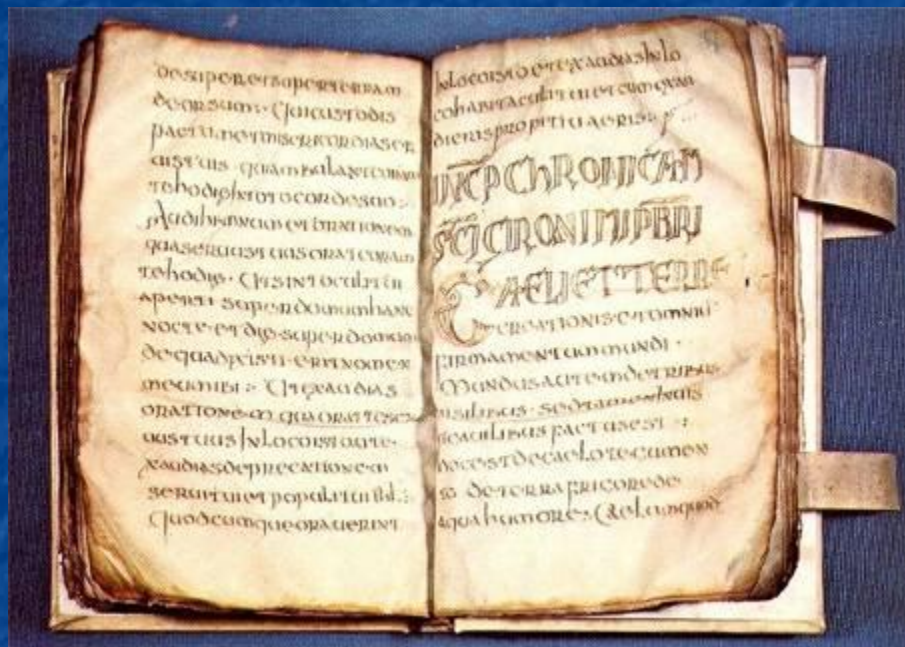 desuper et super terram
deorsum · Qui custodis
pactu et misericordias ser
uis tuis · qui ambulant coram
te hodie in toto corde suo :
Audi hymnum et orationem
qua seruus tuus orat coram
te hodie · Ut sint oculi tui
aperti super domum hanc
nocte · et die · super domum
de qua dixisti · erit nomen
meum ibi : Ut exaudias
oratione qua orat te ser
uus tuus In loco isto
xaudias deprecatione
serui tui et populi tui isrl :
Quodcumque orauerint
In loco isto et exaudias In lo
co habitaculi tui et cum exau
dieris propitiu aeris :
INCP CHRONICAM
SCI GIRONIMI PBRI
CAELI ET TERRE
creationis et omniu
firmamentum mundi ·
Mundus autem de tribus
uisilibus · sed tamen
causilibus factus est :
hoc est de caelo
de terra frigore de
aqua humore : Caelum quod